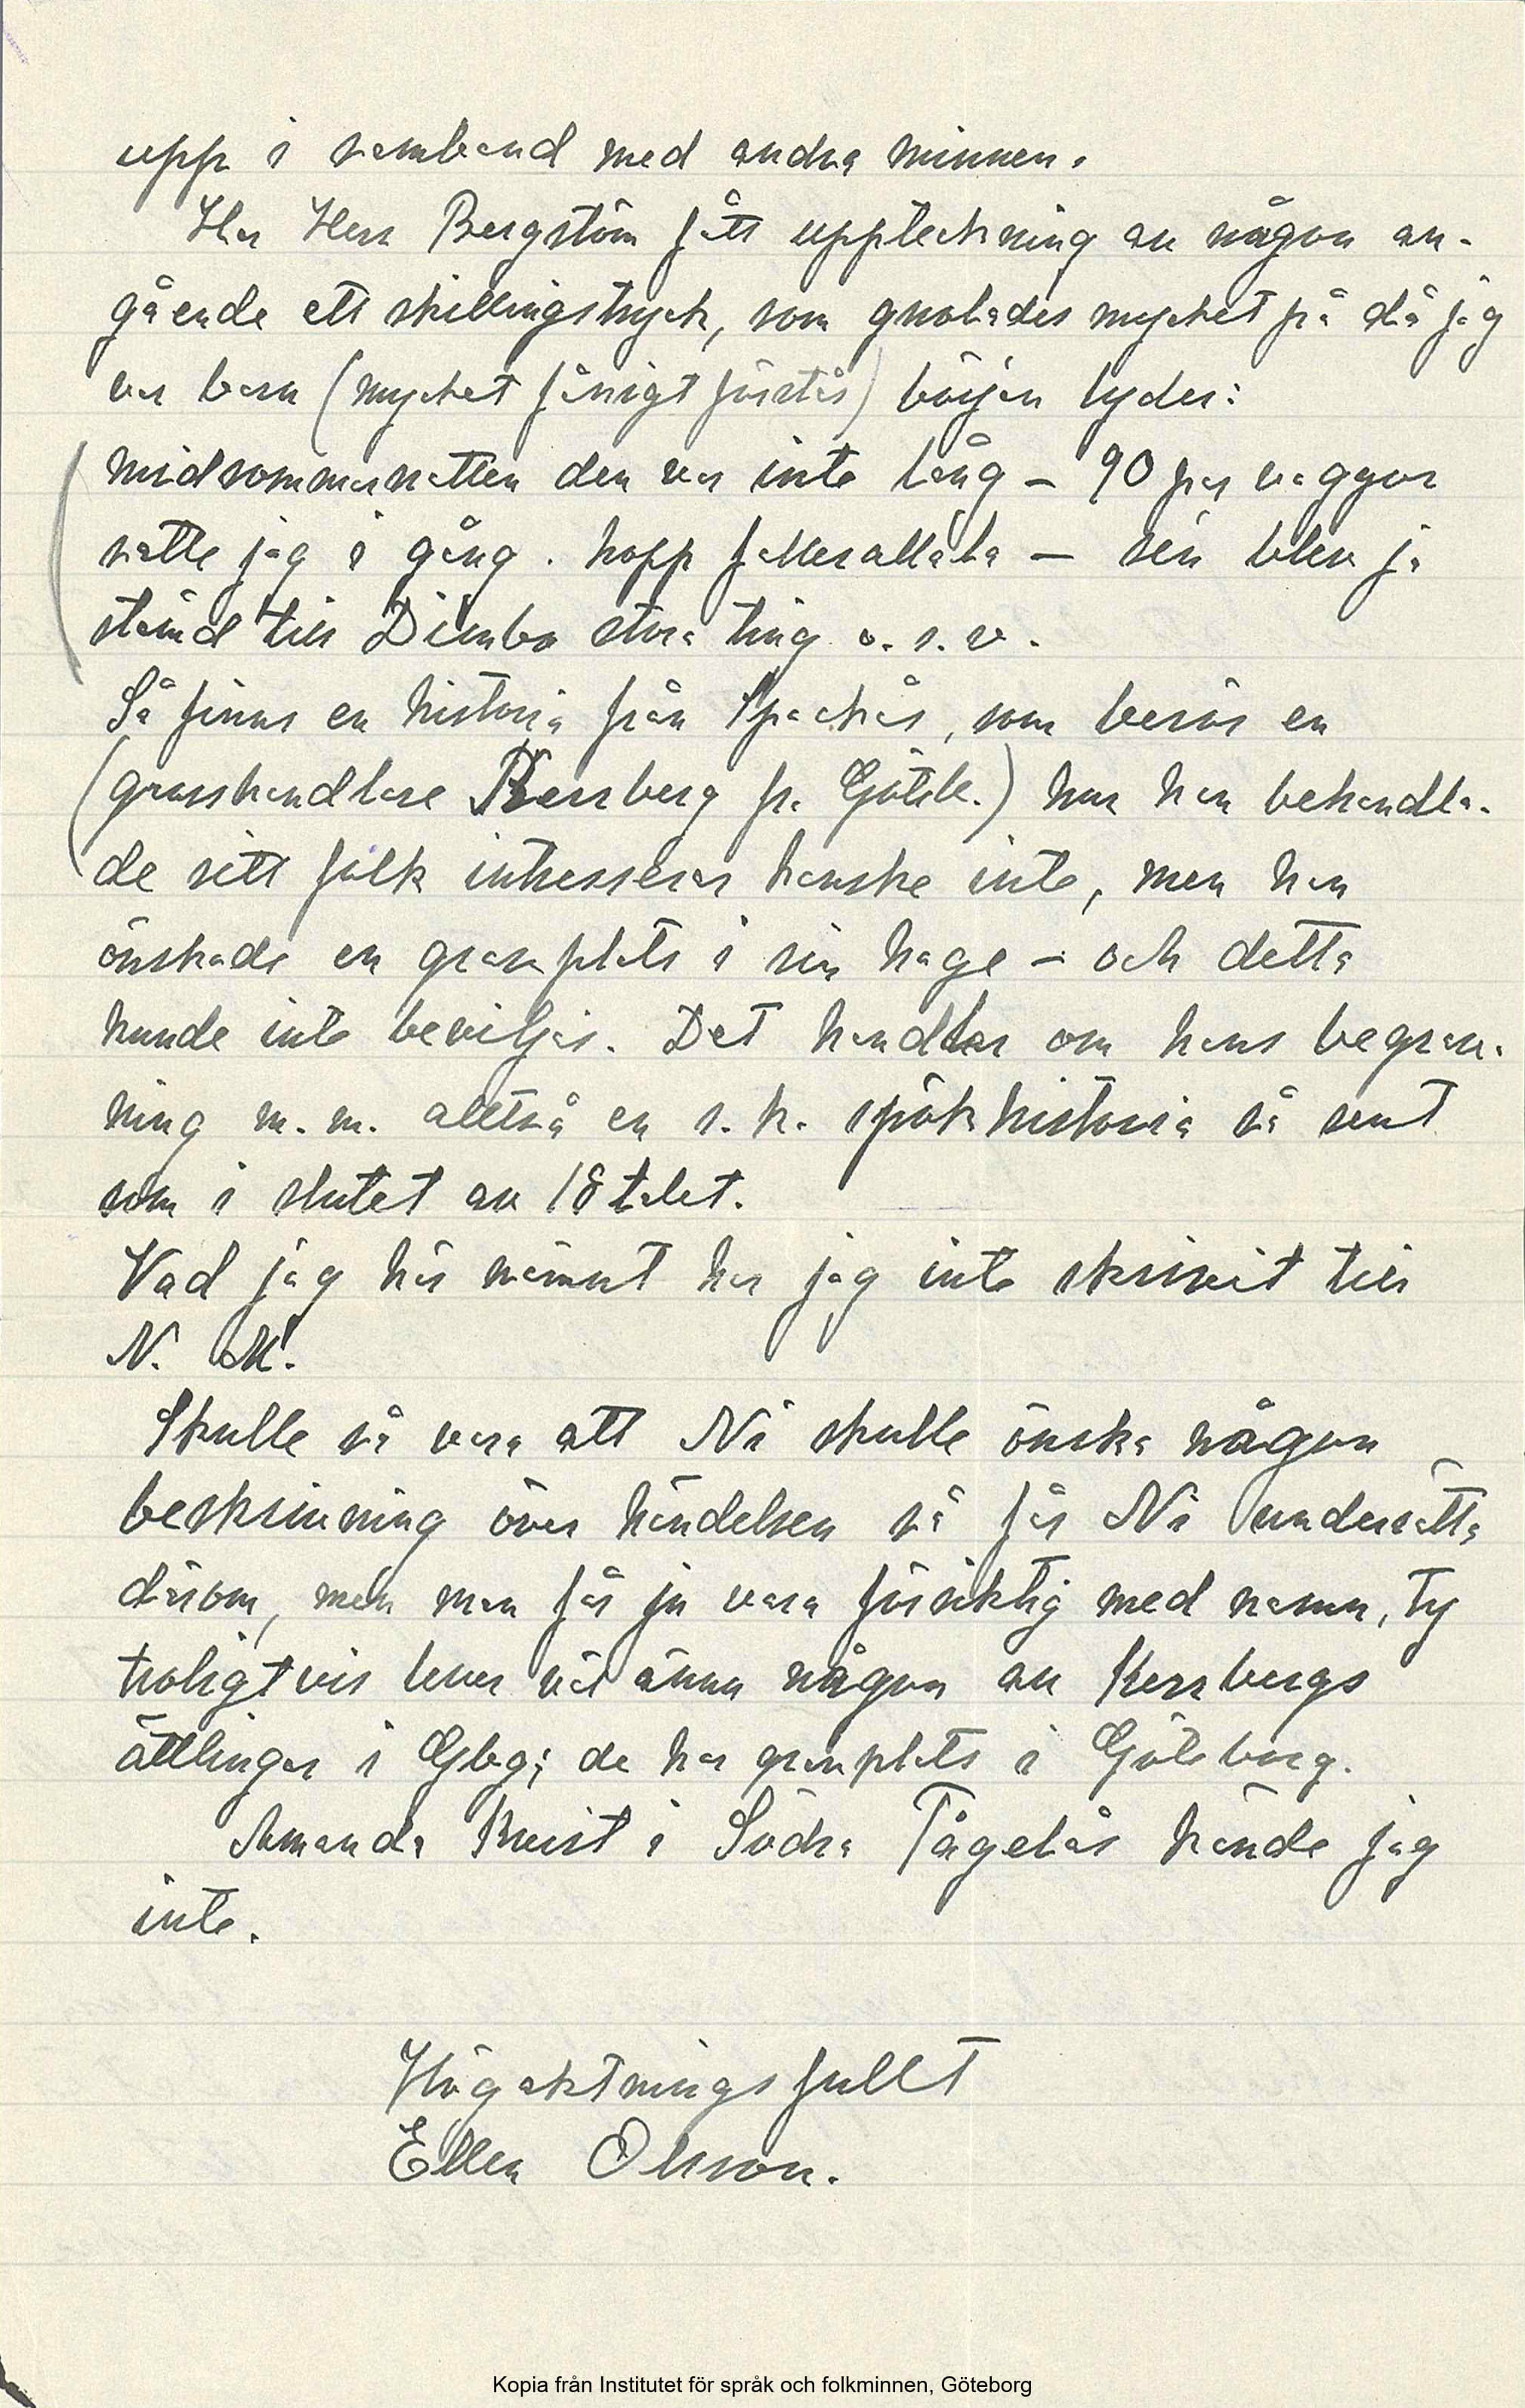 upp i samband med andra minnen.
Har Herr Bergström fått uppteckning av någon an-
gående ett skillingstryck, som gnolades mycket på då jag
var barn (mycket fånigt förstås) början lyder:
midsommarnatten den var inte lång – 90 par vaggor
satte jag i gång. hopp fallerallala – sen blev ja
stämd till Dimbo stora ting o. s. v.
Så finns en historia från Spackås, som berör en
(grosshandlare Kerrberg fr. Göteb.) hur han behandla-
de sitt folk intresserar kanske inte, men han
önskade en gravplats i sin hage – och detta
kunde inte beviljas. Det handlar om hans begrav-
ning m. m. alltså en s. k. spökhistoria så sent
som i slutet av 18talet.
Vad jag här nämnt har jag inte skrivit till
N. M.
Skulle så vara att Ni skulle önska någon
beskrivning över händelsen så får Ni underrätta
därom, men man får ju vara försiktig med namn, ty
troligtvis lever väl ännu någon av Kerrbergs
ättlingar i Gbg; de har gravplats i Göteborg.
Amanda Kvist i Södra Fågelås kände jag
inte.
Högaktningsfullt
Ellen Olsson.
Kopia från Institutet för språk och folkminnen, Göteborg